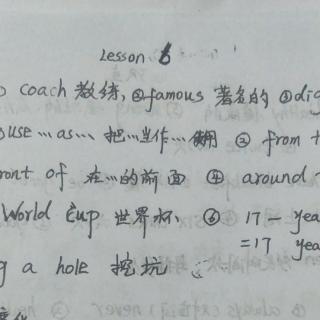 Lesson 6
coach 教练, ②famous 著名的 ③dig
use … as … 把…当作…用 ② from t
ront of 在…的前面 ④ around
World Cup 世界杯 ⑥ 17 - yea
=17 yea
g a hole 挖坑